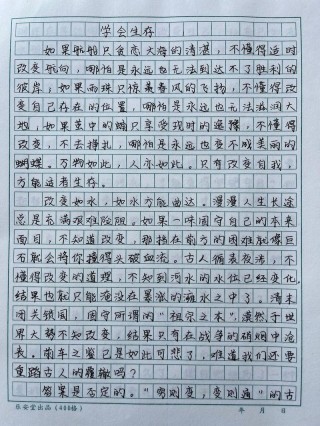 学会生存
如果船舶只贪恋大海的清湛，不懂得适时
改变航向，哪怕是永远也无法到达不了胜利的
彼岸；如果雨珠只惊羡春风的飞扬，不懂得改
变自己存在的位置，哪怕是永远也无法滋润大
地，如果茧中的蛹只享受现时的安逸，不懂得
改变，不去挣扎，哪怕是永远也变不成美丽的
蝴蝶。万物如此，人亦如此。只有改变自我，
方能适者生存。
改变如水，如水方能曲达。漫漫人生长途
总是充满艰难险阻。如果一味固守自己的本来
面目，不知道改变，那挡在前方的困难就像巨
石就会将你撞得头破血流。古人循表夜涉，不
懂得改变的道理，不知到河水的水位已经变化，
结果也就只能淹没在暴涨的滩水之中了。清末
闭关锁国，固守所谓的“祖宗之本”，漠然于世
界大势不知改变，结果只有在战争的硝烟中沧
丧。前车之鉴已是如此可悲了，难道我们还要
重蹈古人的覆辙吗？
答案是否定的。“穷则变，变则通”的古
年 月 日